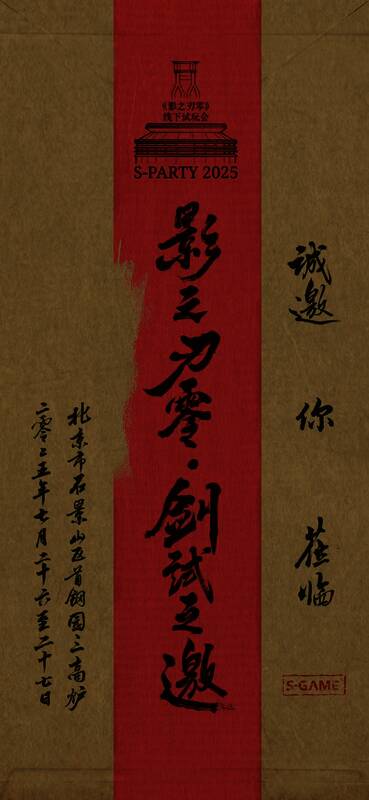 《影之刃零》
线下试玩会
S-PARTY 2025
影之刃零·劍試之邀
誠邀 你 莅臨
北京市石景山區首鋼園三高炉
二零二五年七月二十六至二十七日
S-GAME